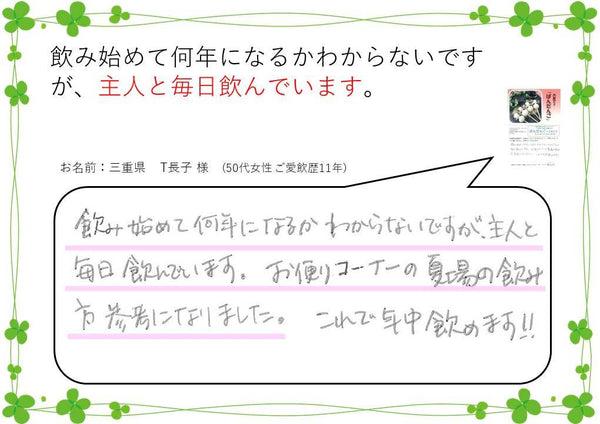 飲み始めて何年になるかわからないです
が、主人と毎日飲んでいます。
お名前：三重県　T長子 様　（50代女性 ご愛飲歴11年）
飲み始めて何年になるかわからないですが、主人と
毎日飲んでいます。お便りコーナーの夏場の飲み
方参考になりました。これで年中飲めます!!